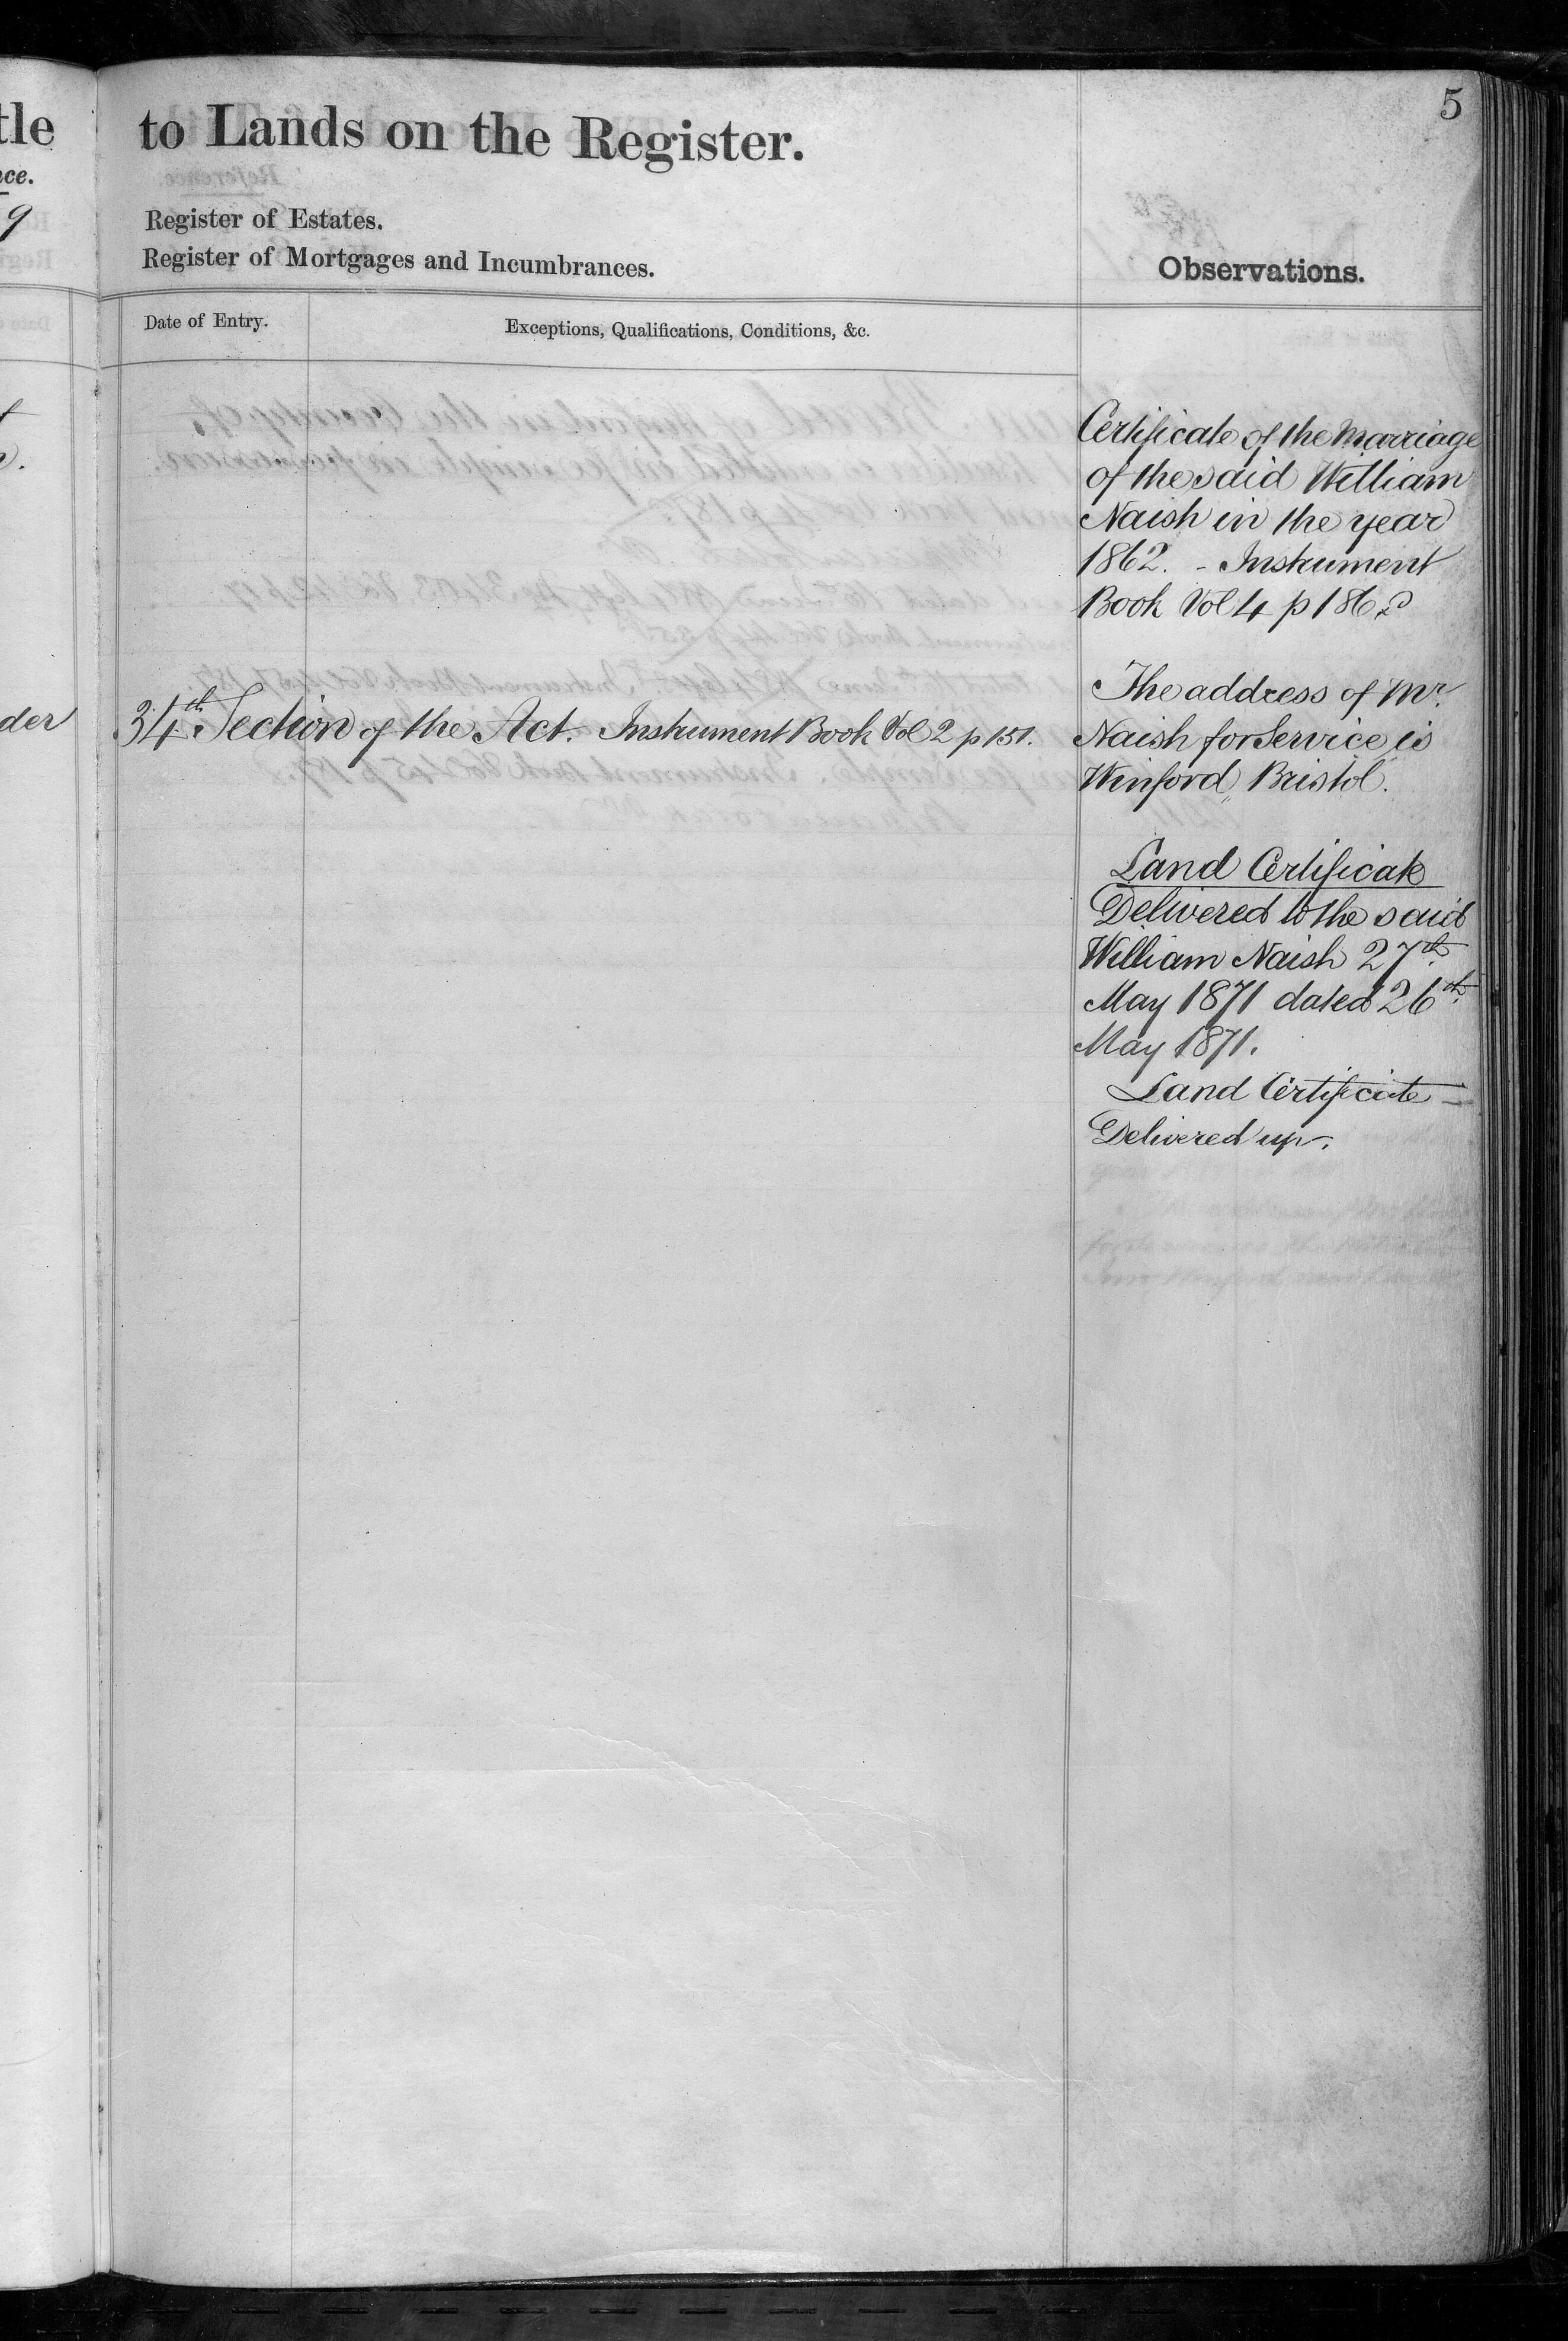 5
tle
to Lands on the Register.
ce.
9
Register of Estates.
Register of Mortgages and Incumbrances.
Observations.
Date of Entry.
Exceptions, Qualifications, Conditions, &c.
der
34th Section of the Act. Instrument Book Vol 2 p 151.
Certificate of the Marriage
of the said William
Naish in the year
1862. - Instrument
Book Vol 4 p 186
The address of Mr.
Naish for Service is
Winford, Bristol.
Land Certificate
Delivered to the said
William Naish 27th
May 1871 dated 26th
May 1871.
Land Certificate
Delivered up.